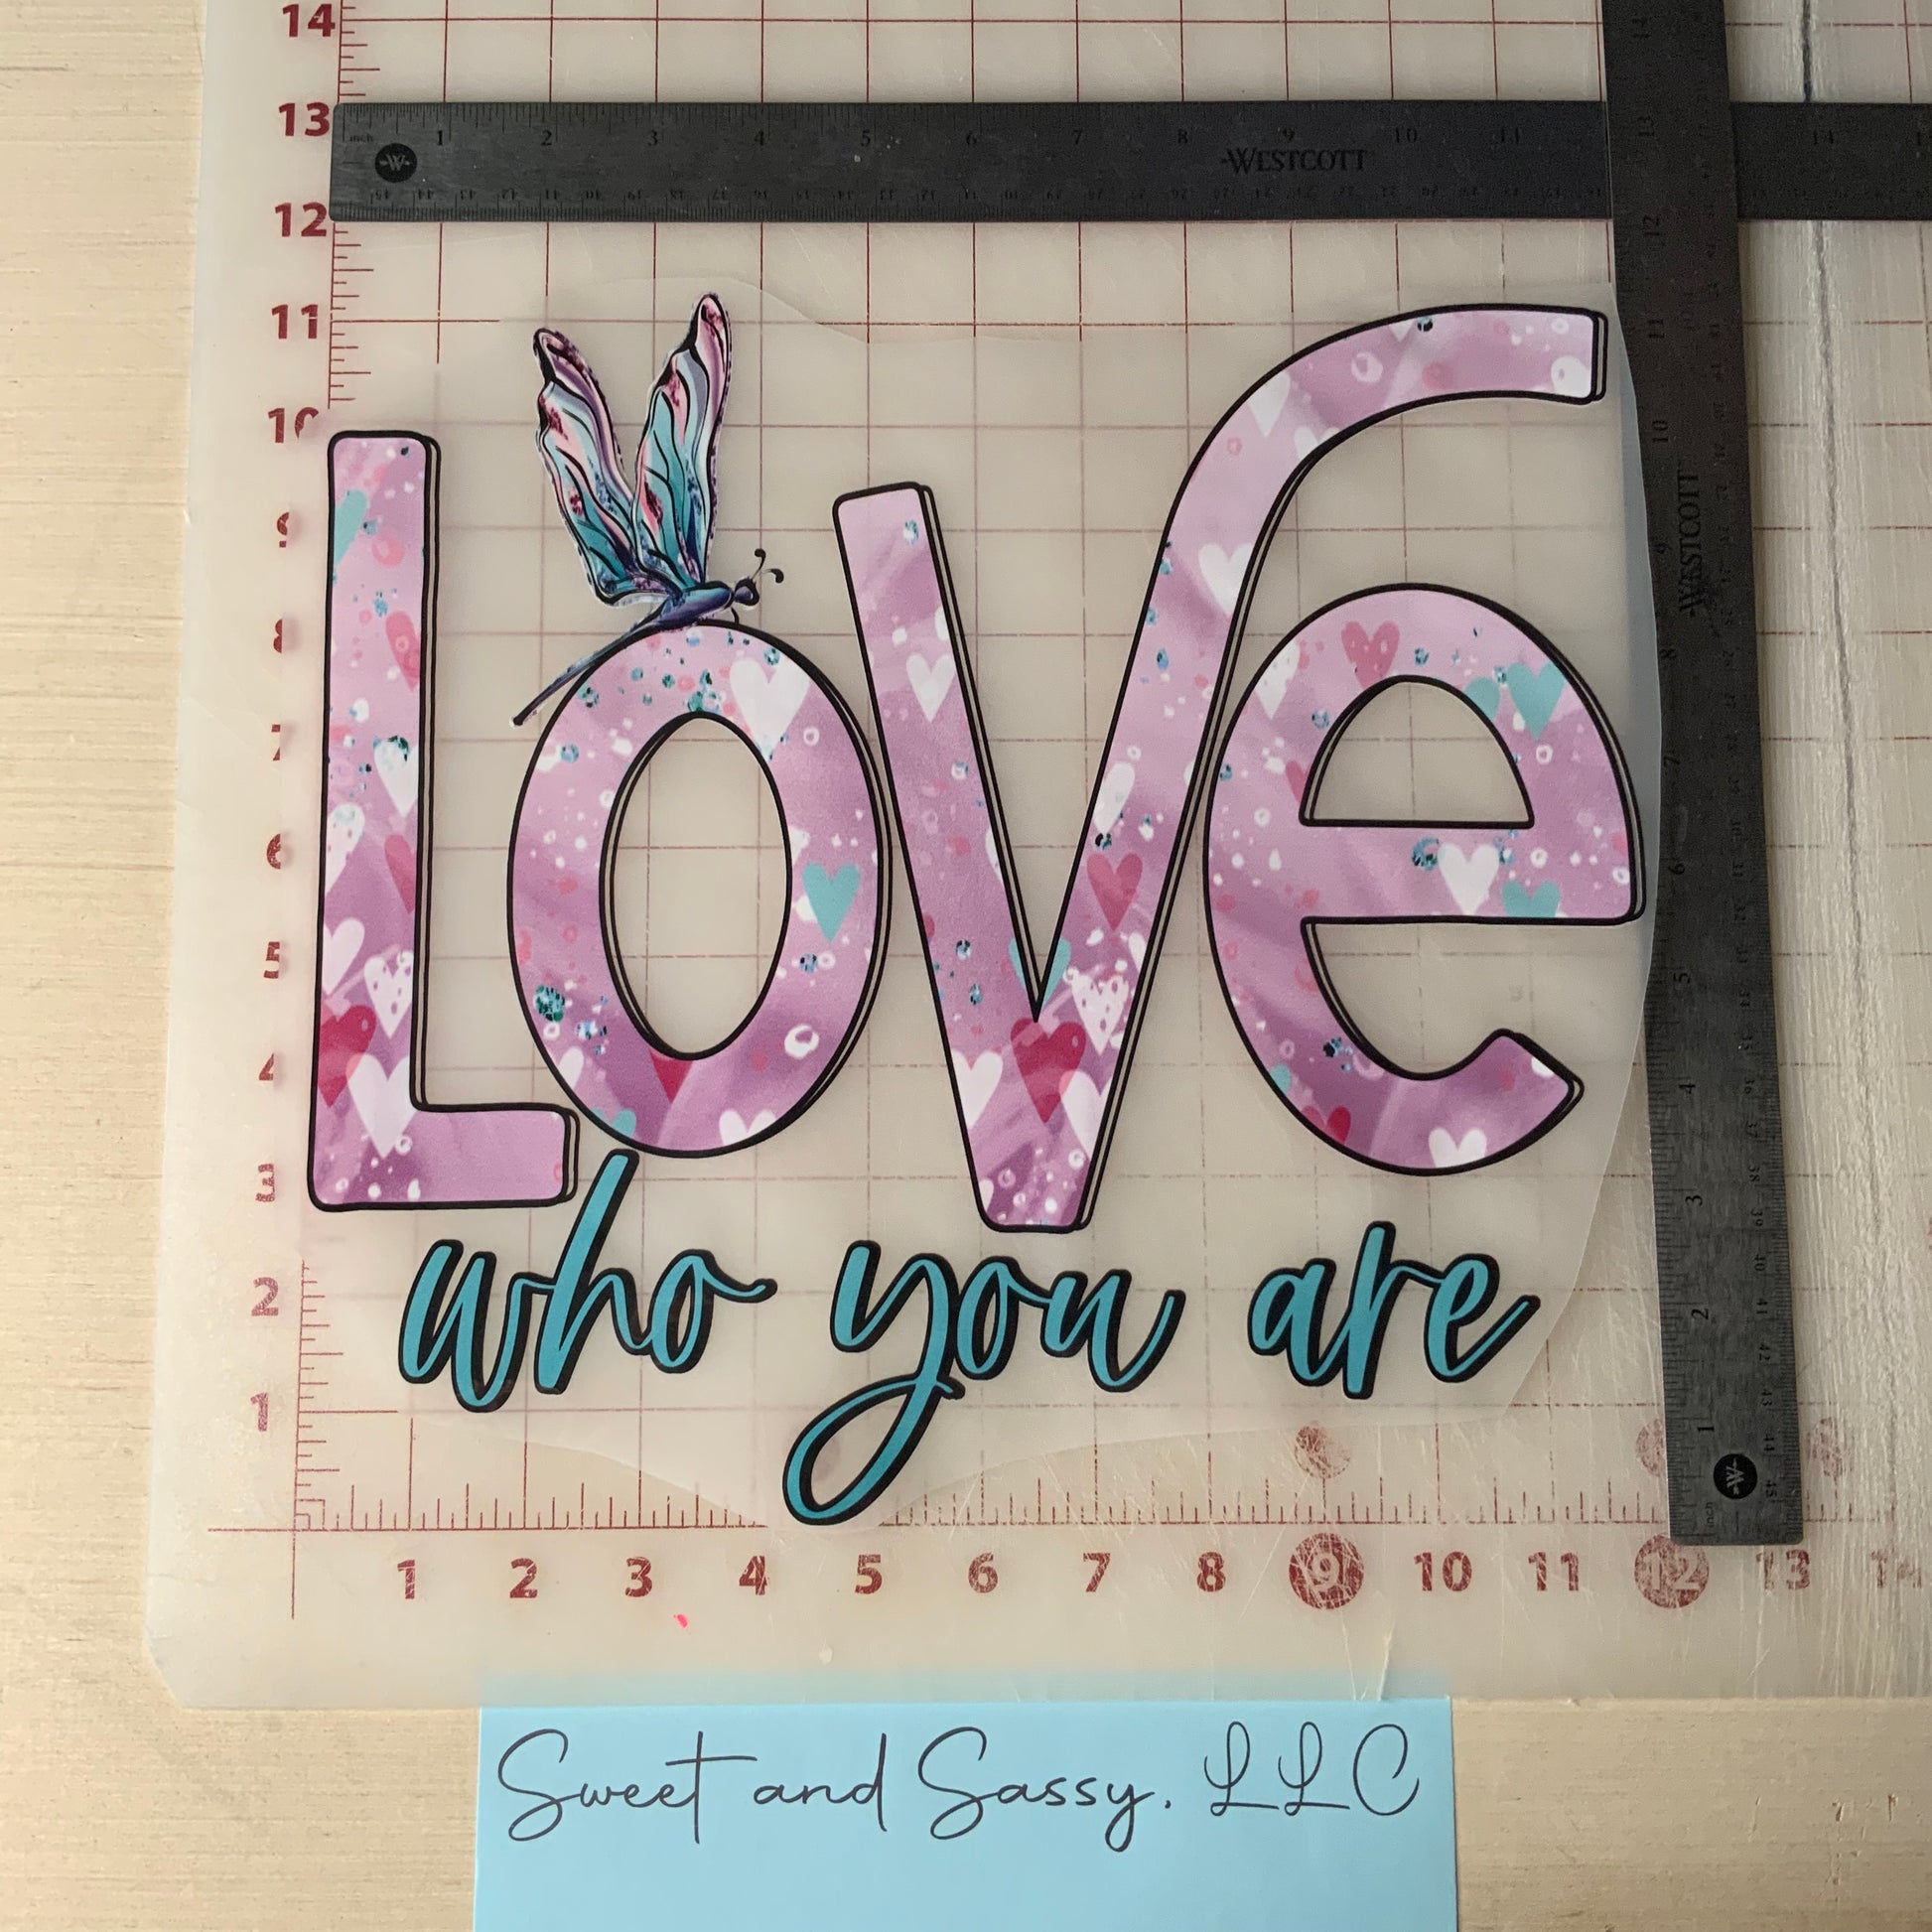 14
13
12
11
10
9
8
7
6
5
4
3
2
1
inch 1 2 3 4 5 6 7 8 9 10 11 14
WESTCOTT
12
11
10
9
8
7
6
5
4
3
2
1
inch
WESTCOTT
LOVe
who you are
1 2 3 4 5 6 7 8 9 10 11 12 13 14
Sweet and Sassy, LLC